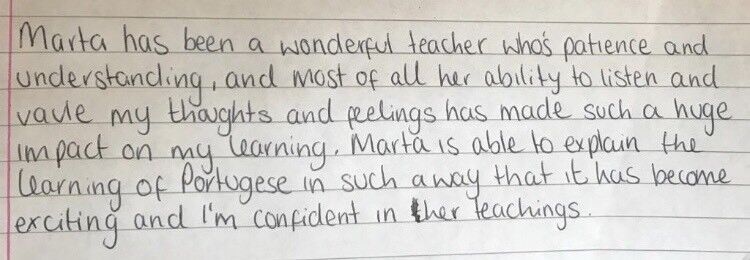 Marta has been a wonderful teacher who's patience and
understanding, and most of all her ability to listen and
vaule my thoughts and feelings has made such a huge
impact on my learning. Marta is able to explain the
learning of Portugese in such a way that it has become
exciting and I'm confident in her teachings.